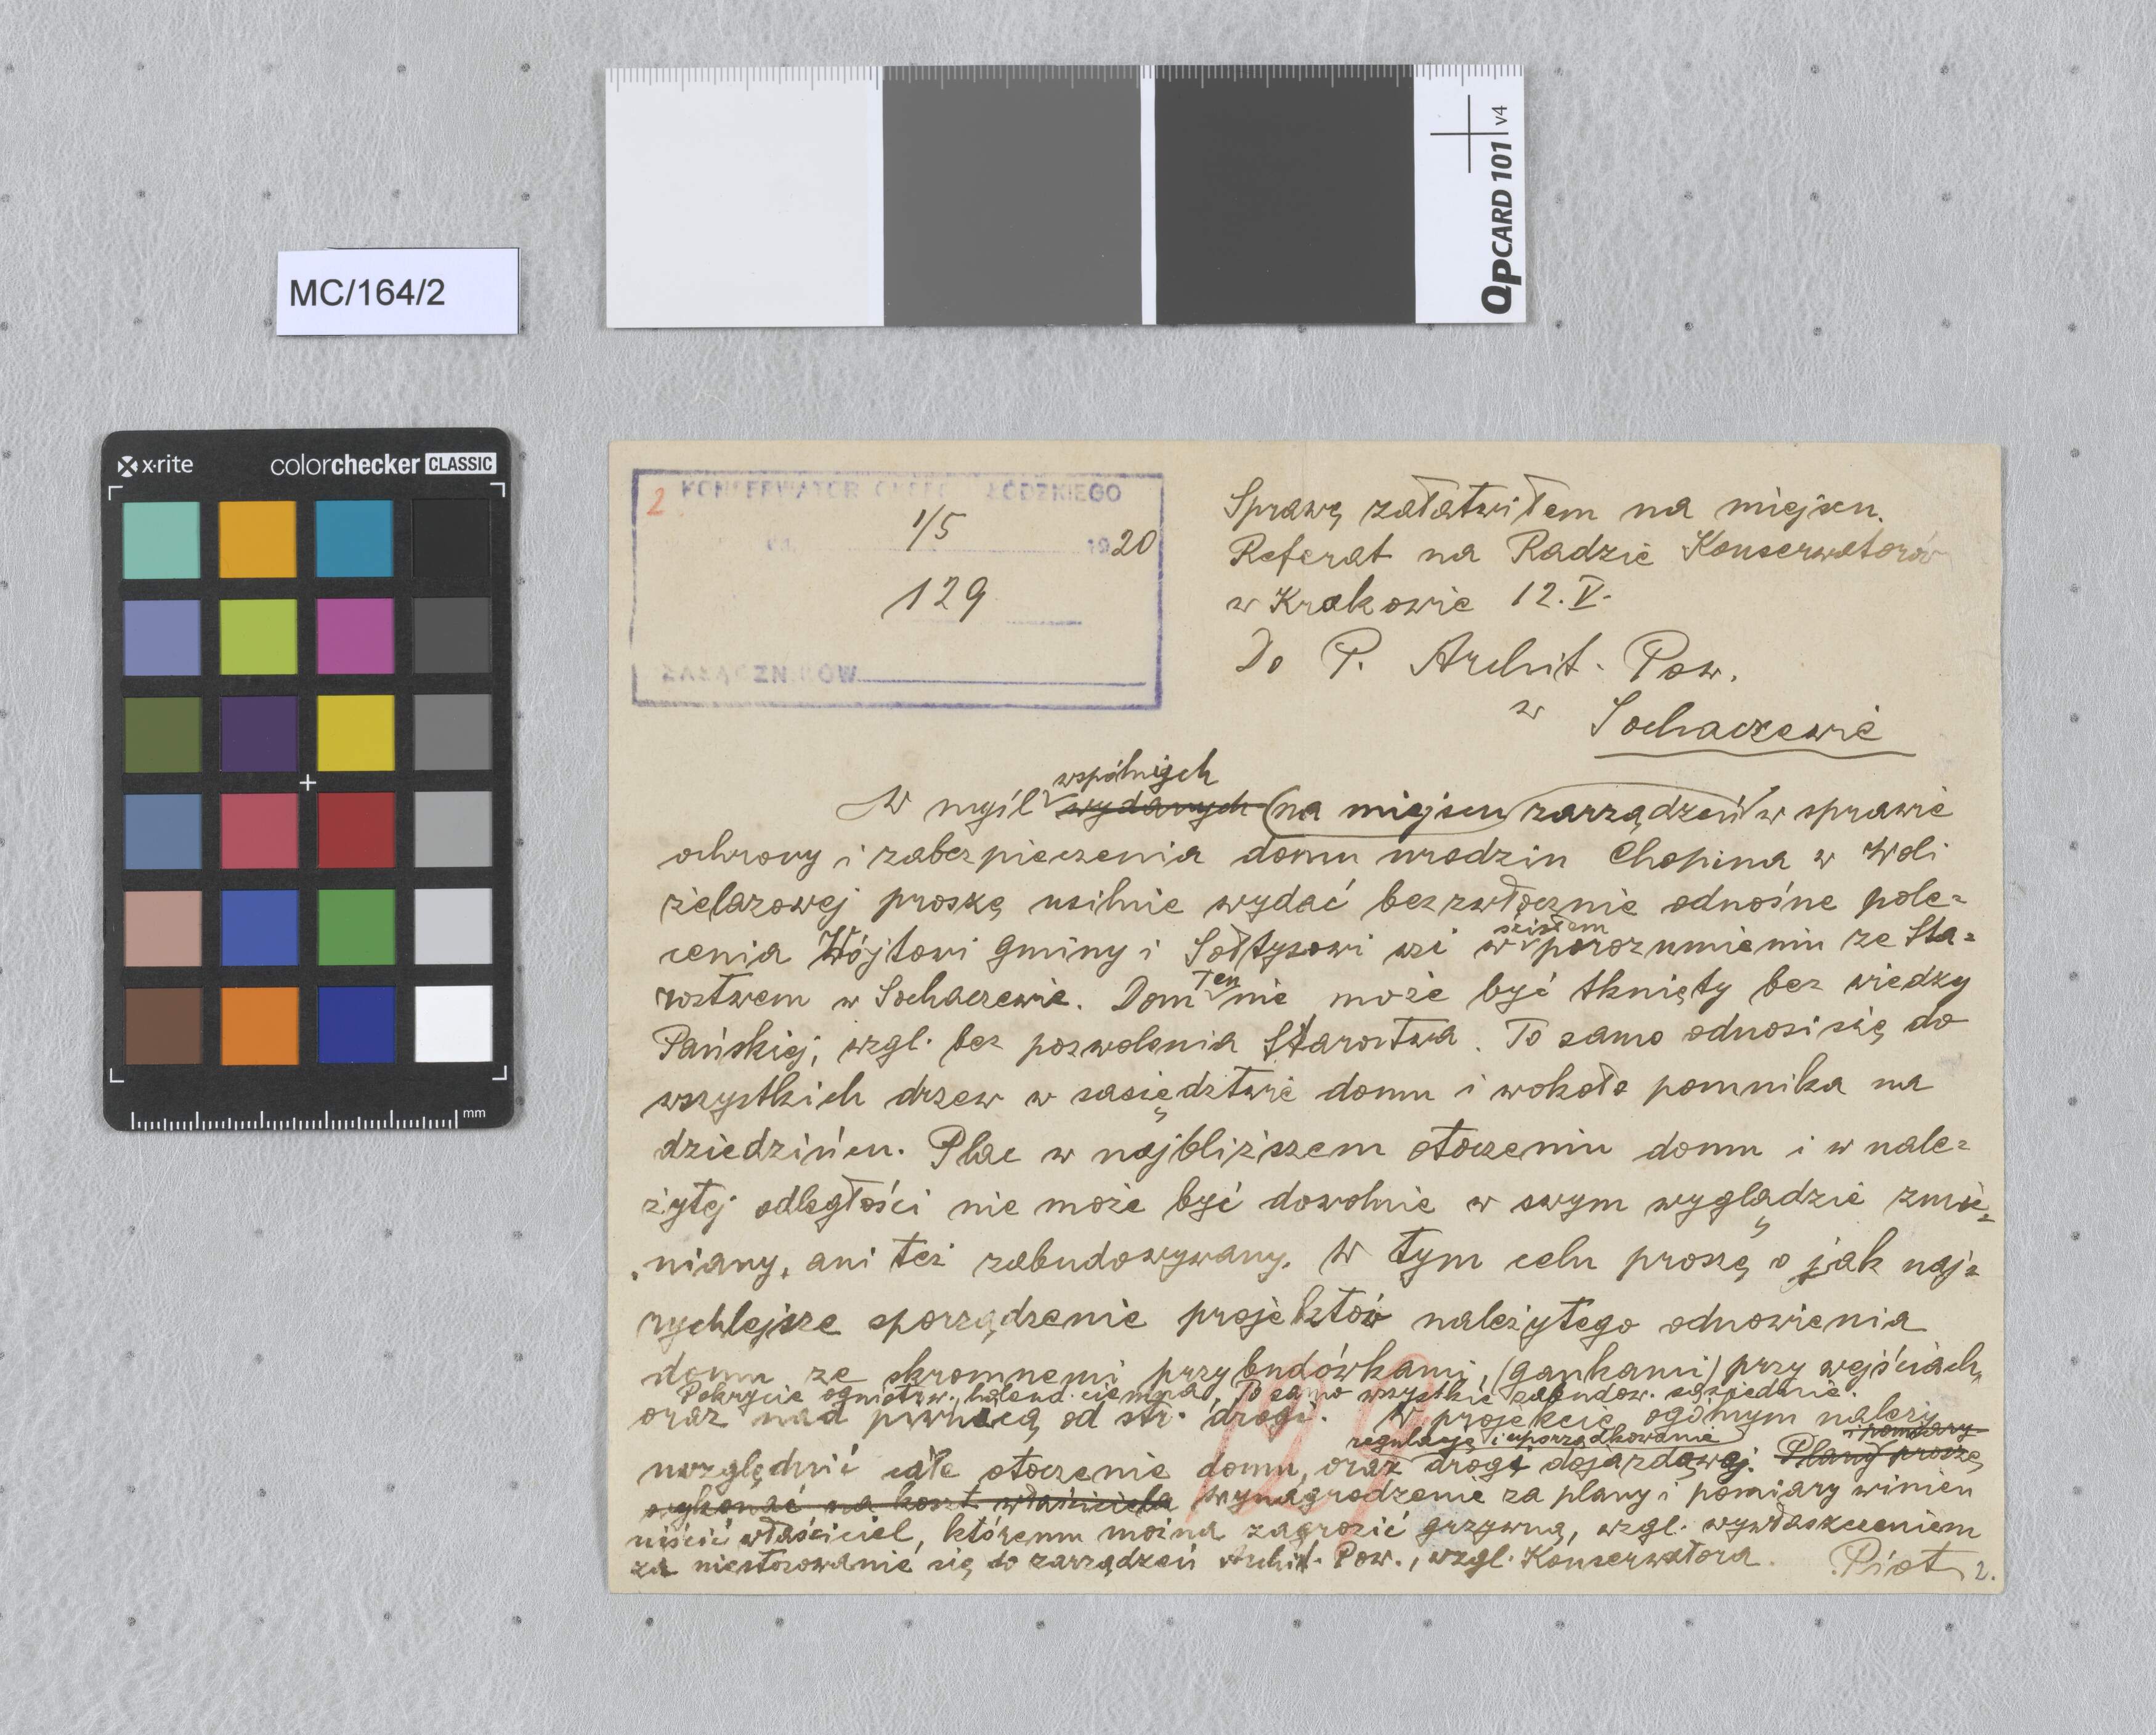 QPCARD 101 v4
MC/164/2
x·rite colorchecker CLASSIC
mm
2 KONSERWATOR OKRĘGU ŁÓDZKIEGO
1/5 1920
129
ZAŁĄCZNIKÓW
Sprawę załatwiłem na miejscu.
Referat na Radzie Konserwatorów
w Krakowie 12.V.
Do P. Archit. Pow.
w Sochaczewie
wspólnych
W myśl wydanych (na miejscu) zarządzeń w sprawie
ochrony i zabezpieczenia domu urodzin Chopina w Woli
żelazowej proszę usilnie wydać bezzwłocznie odnośne pole=
ścisłem
cenia Wójtowi gminy i Sołtysowi wsi w porozumieniu ze Sta=
ten
rostwem w Sochaczewie. Dom nie może być tknięty bez wiedzy
Pańskiej, wzgl. bez pozwolenia Starostwa. To samo odnosi się do
wszystkich drzew w sąsiedztwie domu i wokoło pomnika na
dziedzińcu. Plac w najbliższem otoczeniu domu i w nale=
żytej odległości nie może być dowolnie w swym wyglądzie zmie=
niany, ani też zabudowywany. W tym celu proszę o jak naj=
rychlejsze sporządzenie projektów należytego odnowienia
domu ze skromnemi przybudówkami, (gankami) przy wejściach,
Pokrycie ogniotrw., holend. ciemna. To samo wszystkie zabudow. sąsiednie.
oraz nad piwnicą od str. drogi. W projekcie ogólnym należy
regulację i uporządkowanie i pomiary
uwzględnić całe otoczenie domu, oraz drogi dojazdowej. Plany proszę
wykonać na koszt właściciela Wynagrodzenie za plany i pomiary winien
uiścić właściciel, któremu można zagrozić grzywną, wzgl. wywłaszczeniem
za niestosowanie się do zarządzeń Archit. Pow., wzgl. Konserwatora. Piot
2.
129